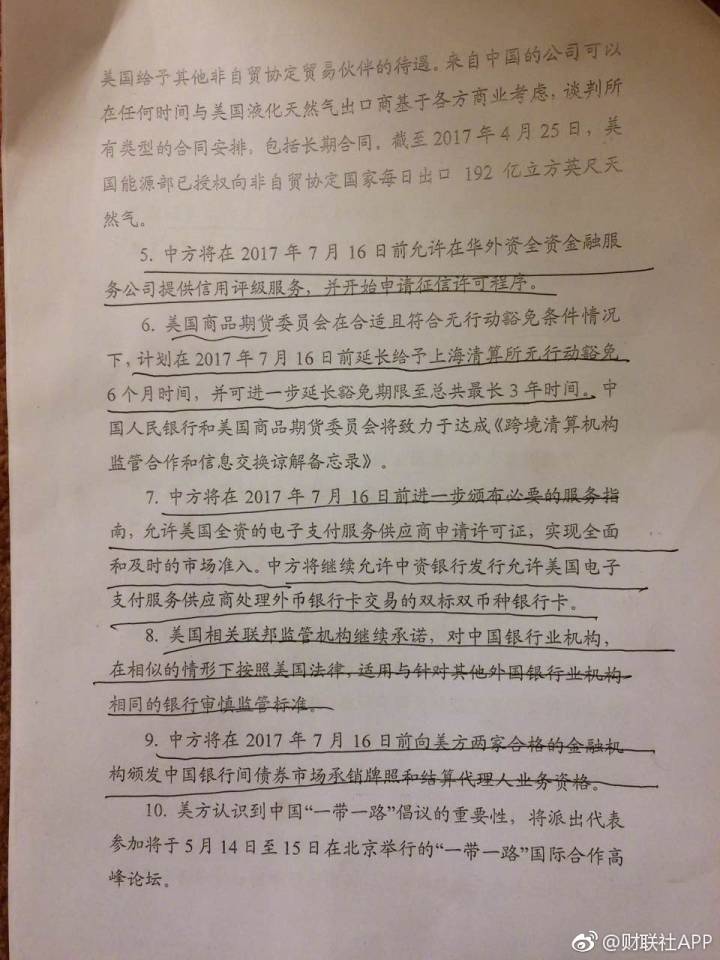 美国给予其他非自贸协定贸易伙伴的待遇。来自中国的公司可以
在任何时间与美国液化天然气出口商基于各方商业考虑，谈判所
有类型的合同安排，包括长期合同。截至2017年4月25日，美
国能源部已授权向非自贸协定国家每日出口 192 亿立方英尺天
然气。
5. 中方将在2017年7月16日前允许在华外资全资金融服
务公司提供信用评级服务，并开始申请征信许可程序。
6. 美国商品期货委员会在合适且符合无行动豁免条件情况
下，计划在2017年7月16日前延长给予上海清算所无行动豁免
6个月时间，并可进一步延长豁免期限至总共最长3年时间。中
国人民银行和美国商品期货委员会将致力于达成《跨境清算机构
监管合作和信息交换谅解备忘录》。
7. 中方将在2017年7月16日前进一步颁布必要的服务指
南，允许美国全资的电子支付服务供应商申请许可证，实现全面
和及时的市场准入。中方将继续允许中资银行发行允许美国电子
支付服务供应商处理外币银行卡交易的双标双币种银行卡。
8. 美国相关联邦监管机构继续承诺，对中国银行业机构，
在相似的情形下按照美国法律，适用与针对其他外国银行业机构
相同的银行审慎监管标准。
9. 中方将在2017年7月16日前向美方两家合格的金融机
构颁发中国银行间债券市场承销牌照和结算代理人业务资格。
10. 美方认识到中国“一带一路”倡议的重要性，将派出代表
参加将于5月14日至15日在北京举行的“一带一路”国际合作高
峰论坛。
@财联社APP